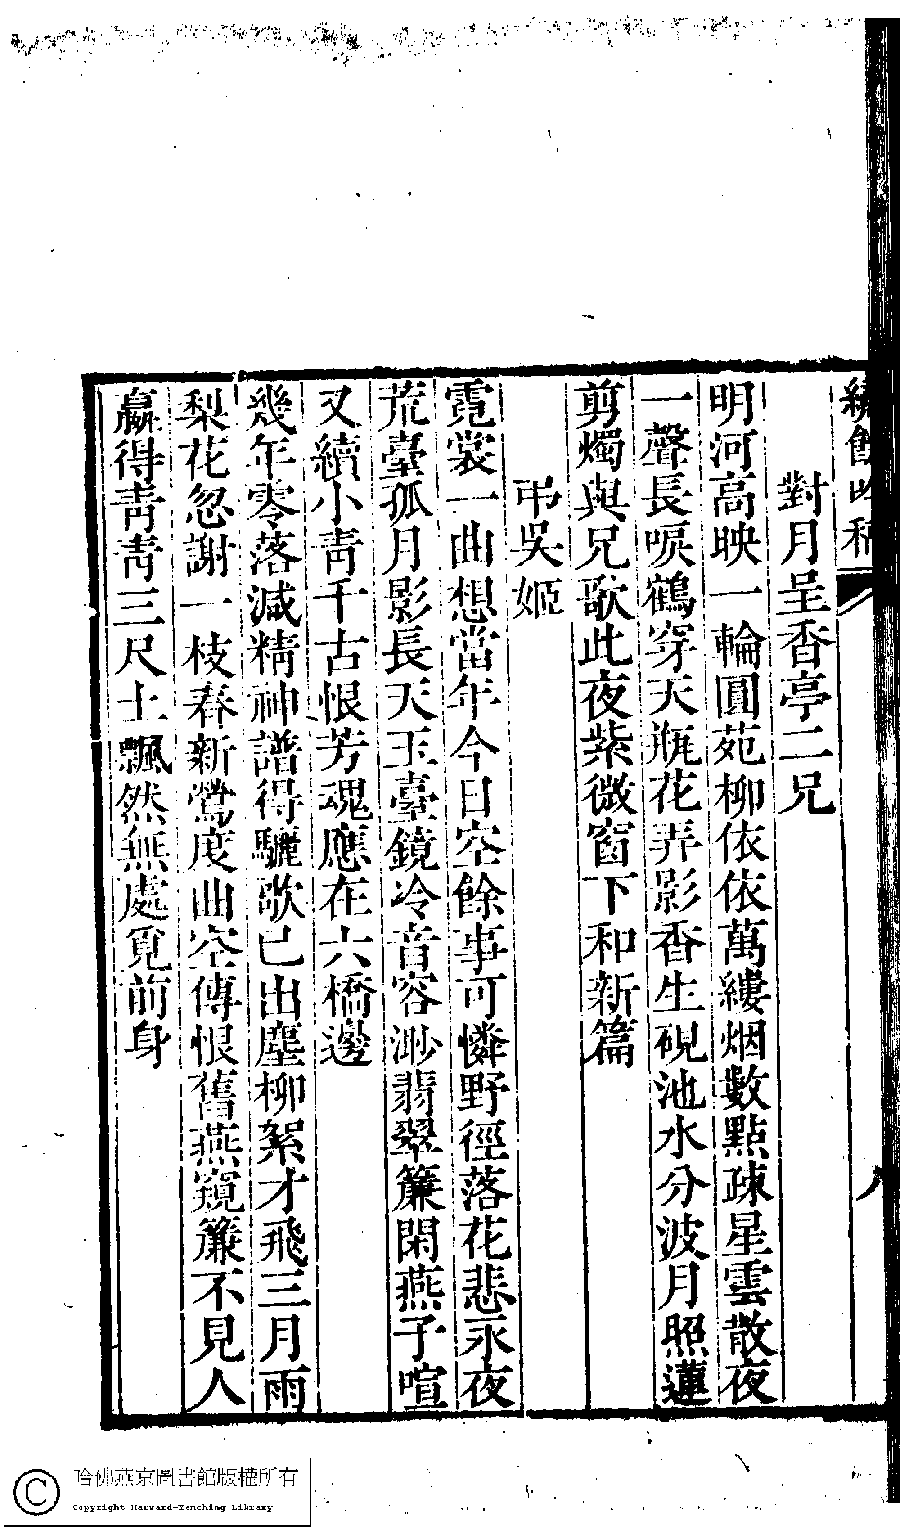 繡餘吟稿
八
對月呈香亭二兄
明河高映一輪圓苑柳依依萬縷烟數點疎星雲散夜
一聲長唳鶴穿天瓶花弄影香生硯池水分波月照蓮
剪燭與兄歌此夜紫微窗下和新篇
弔吳姬
霓裳一曲想當年今日空餘事可憐野徑落花悲永夜
荒臺孤月影長天玉臺鏡冷音容渺翡翠簾閑燕子喧
又續小青千古恨芳魂應在六橋邊
幾年零落減精神譜得驪歌已出塵柳絮才飛三月雨
梨花忽謝一枝春新鶯度曲空傳恨舊燕窺簾不見人
嬴得青青三尺土飄然無處覓前身
哈佛燕京圖書館版權所有
Copyright Harvard-Yenching Library